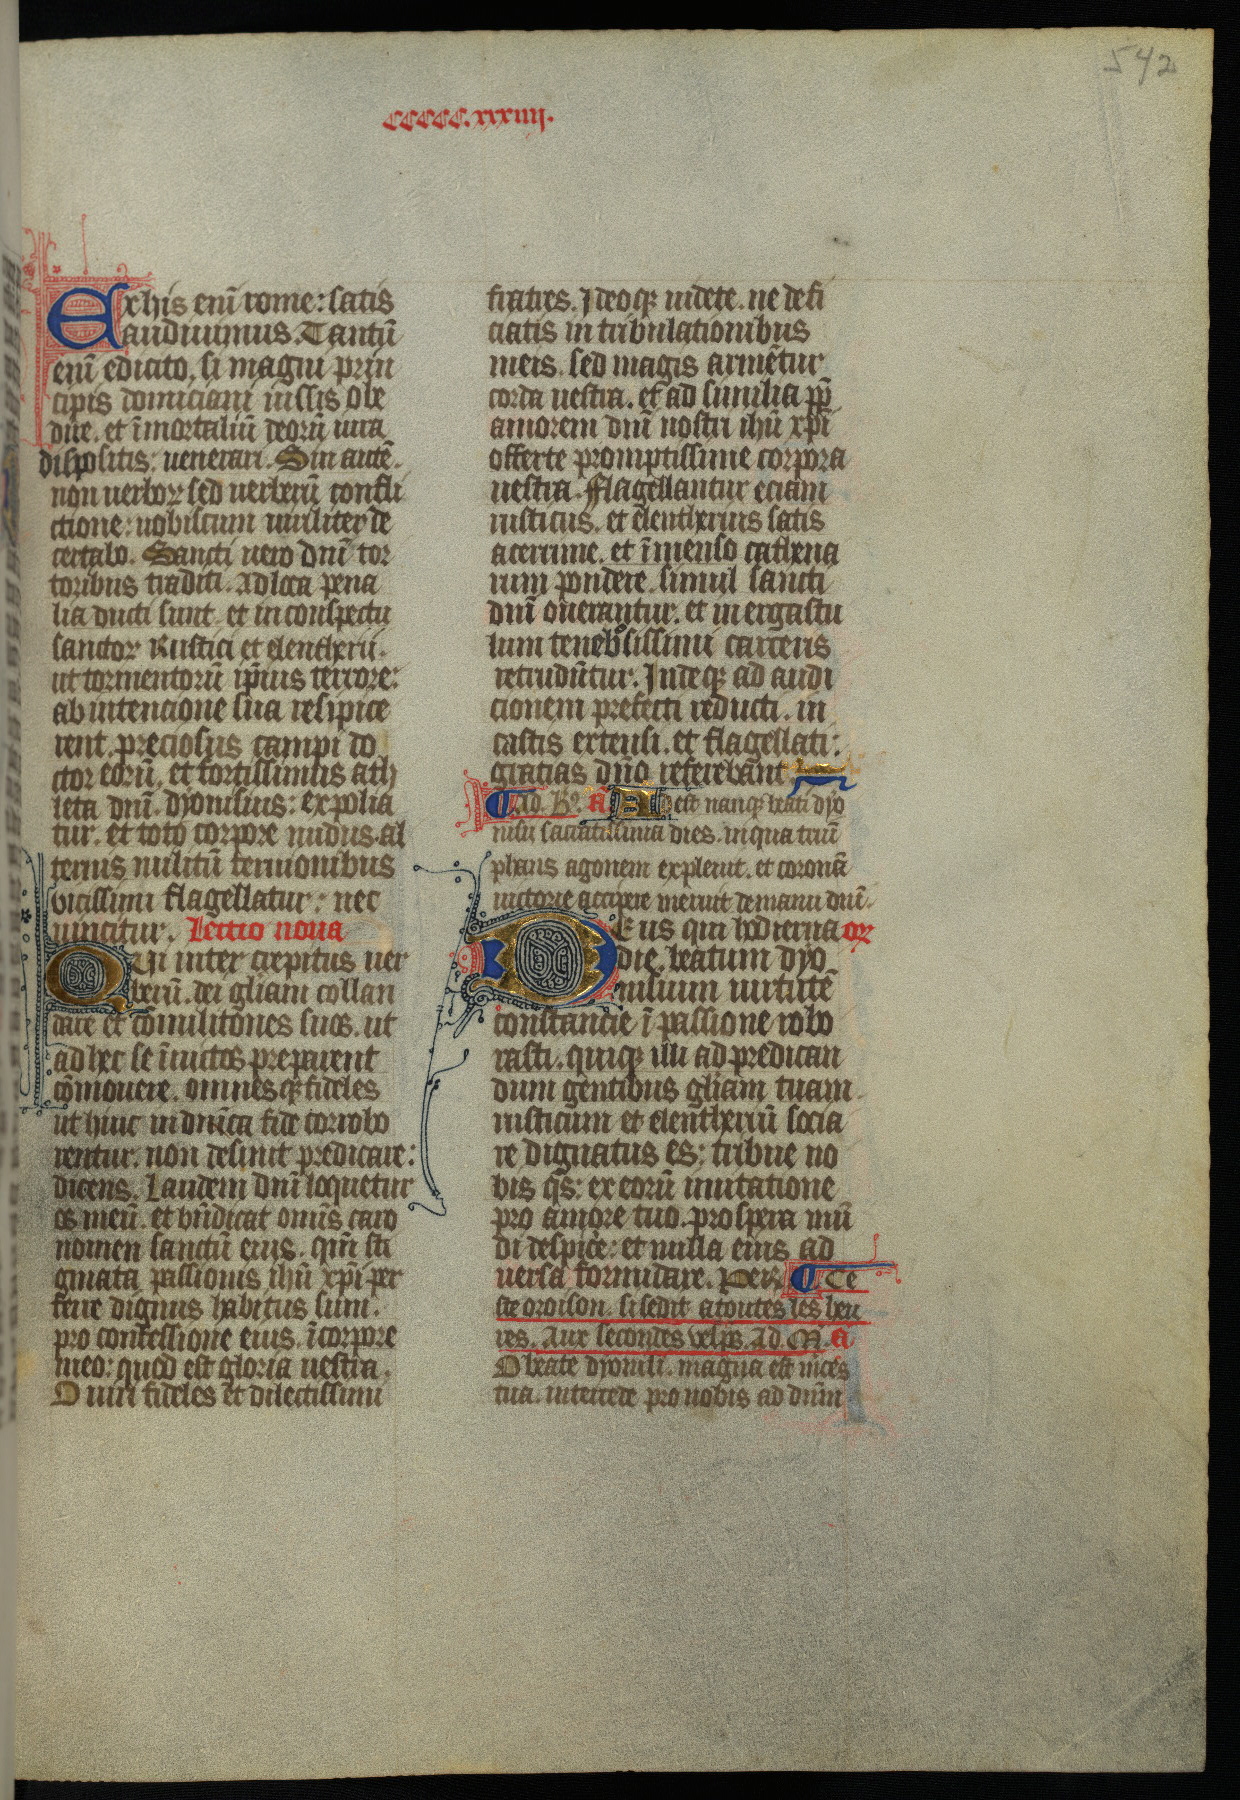 542
ccccc.xxxiiij.
Ex his eni̅ rome: satis
audiuimus. Tantu̅
eni̅ edicito, si magni prin
cipis domiciani iussis obe
dire. et i̅mortaliu̅ deoru̅ iura
dispositis: uenerari. Sin aute̅.
non uerboꝝ sed uerberu̅ confli
ctione: nobiscum uiriliter de
certabo. Sancti uero dni̅ tor
toribus traditi. ad loca pena
lia ducti sunt. et in conspectu
sanctoꝝ Rustici et eleutherii.
ut tormentoru̅ ip̅ius terrore:
ab intencione sua resipice
rent. preciosus campi do
ctor eoru̅. et fortissimus ath
leta dni̅. dyonisius: expolia
tur. et toto corpore nudus. al
ternis militu̅ ternionibus
vicissim flagellatur: nec
uincitur. Lectio nona
Qui inter crepitus uer
beru̅. dei gl̅iam collau
dare et co̅militones suos. ut
ad hec se i̅uictos preparent
co̅mouere. omnesqꝫ fideles
ut hinc in dn̅ica fide corrobo
rentur. non desinit predicare:
dicens. Laudem dni̅ loquetur
os meu̅. et bn̅dicat omn̅is caro
nomen sanctu̅ eius. qui̅ sti
gmata passionis ihu̅ xpi̅ per
ferre dignus habitus sum.
pro confessione eius. i̅ corpore
meo: quod est gloria uestra.
O uiri fideles et dilectissimi
fratres. Ideoqꝫ uidete. ne defi
ciatis in tribulationibus
meis. sed magis arme̅tur
corda uestra. et ad similia ꝓp̅
amorem dni̅ nostri ihu̅ xpi̅
offerte promptissime corpora
uestra. Flagellantur eciam
rusticus. et eleutherius satis
acerrime. et i̅menso cathena
rum pondere. simul sancti
dni̅ onerantur. et in ergastu
lum tenebͦsissimi carceris
retrudu̅tur. Indeqꝫ ad audi
cionem prefecti reducti. in
castis extensi. et flagellati:
gratias dn̅o referebant.
Ad. Bͦ. a̅. Hec est nanqꝫ beati dyo
nisii sacratissima dies. in qua triu̅
phans agonem expleuit. et corona̅
uictorie accipere meruit de manu dni̅.
Deus qui hodierna oꝝ
die. beatum dyo
nisium uirtute̅
constancie i̅ passione robo
rasti. quiqꝫ illi ad predican
dum gentibus gl̅iam tuam.
rusticum et eleutheriu̅ socia
re dignatus es: tribue no
bis qs̅: ex eoru̅ imitatione
pro amore tuo. prospera mu̅
di despice: et nulla eius ad
uersa formidare. Per. Ce
ste oroison. si sedit a toutes les heu
res. Aux secondes vesp̅s. Ad. M̅. a̅
O beate dyonisi. magna est m̅ces
tua. intercede pro nobis ad dnm̅